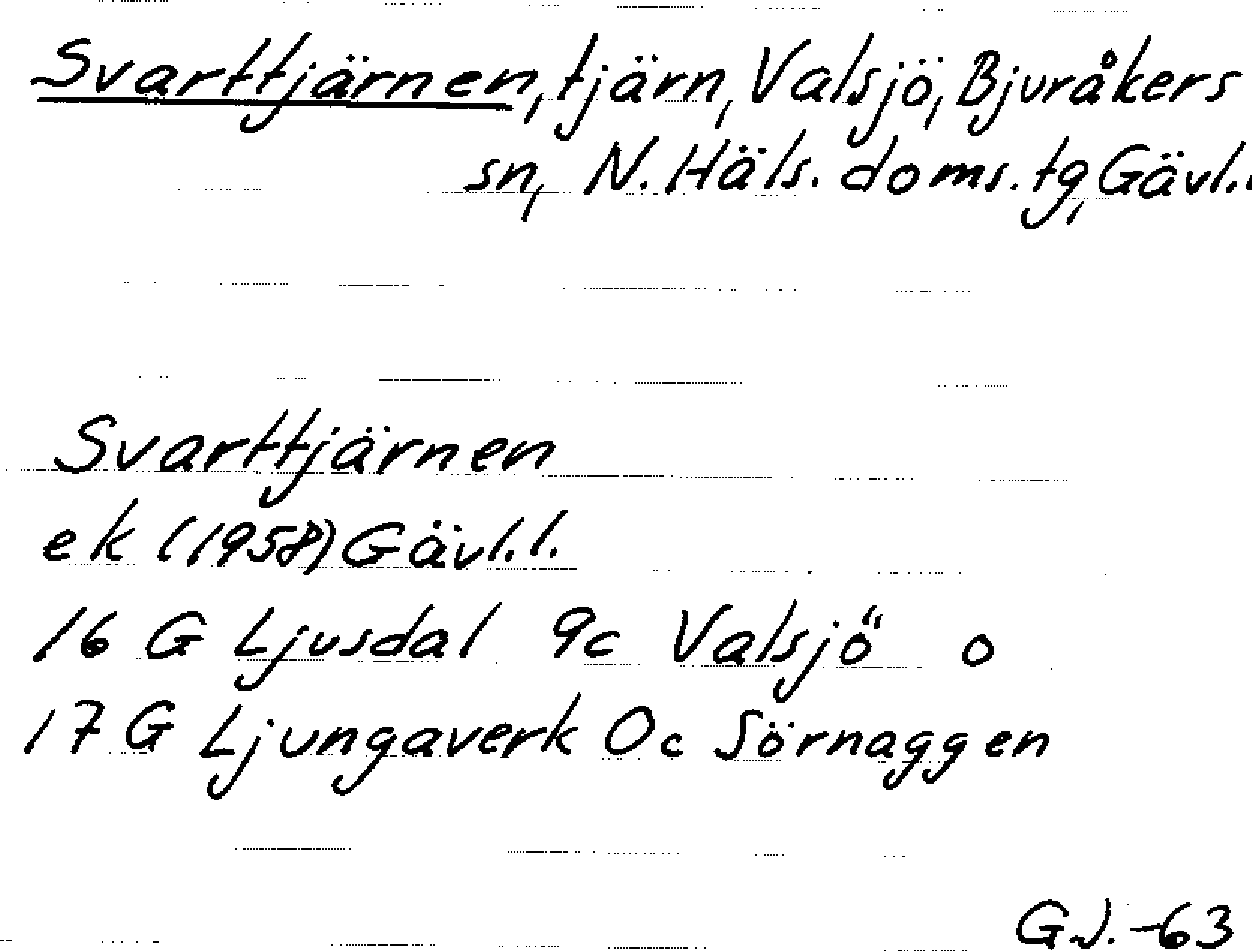 Svarttjärnen, tjärn, Valsjö, Bjuråkers
sn, N. Häls. doms. tg, Gävl.
Svarttjärnen
ek (1958) Gävl.l.
16 G Ljusdal 9c Valsjö o
17 G Ljungaverk 0c Sörnaggen
G.J. -63